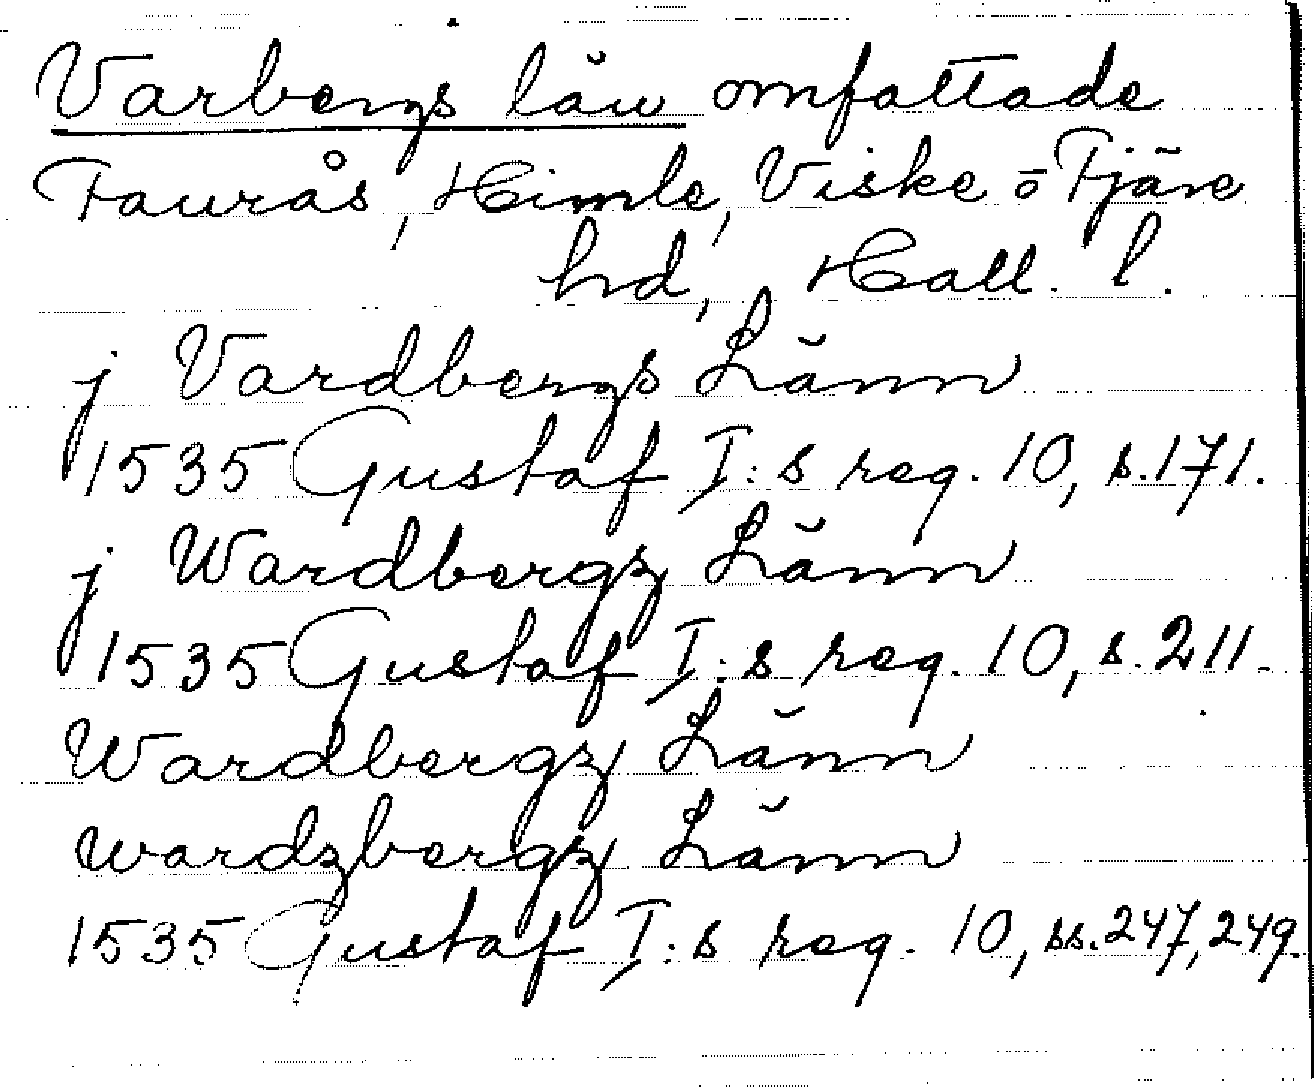 Varbergs län omfattade
Faurås, Himle, Viske o Fjäre
hd, Hall. l.
j Vardbergs Länn
1535 Gustaf I:s reg. 10, s. 171.
j Wardbergz Länn
1535 Gustaf I:s reg. 10, s. 211.
Wardbergz Länn
wardzbergz Länn
1535 Gustaf I:s reg. 10, ss. 247, 249.